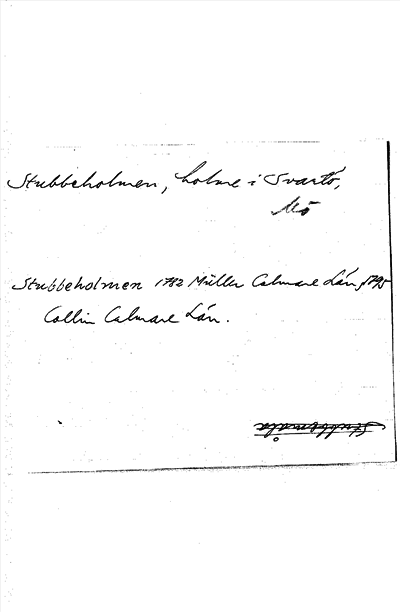 Stubbeholmen, holme i Svartö,
Mö
Stubbeholmen 1782 Müller Calmare Län, 1795
Collin Calmare Län.
Stubbemåla